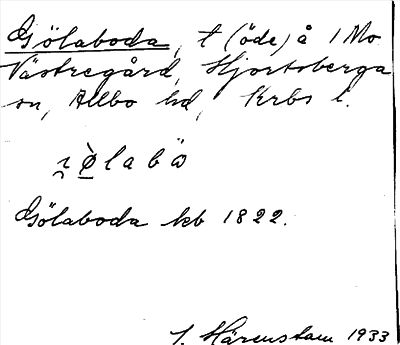 Gölaboda, t (öde) å 1 Mo
Västregård, Hjortsberga
sn, Allbo hd, Krbs l.
Gölaboda kb 1822.
J. Härenstam 1933